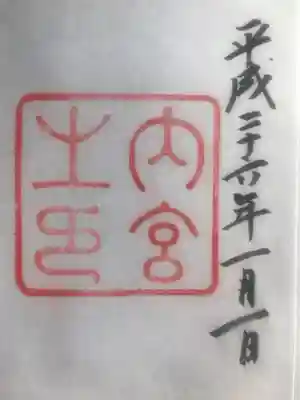 平成二十六年一月一日
内宮
之印